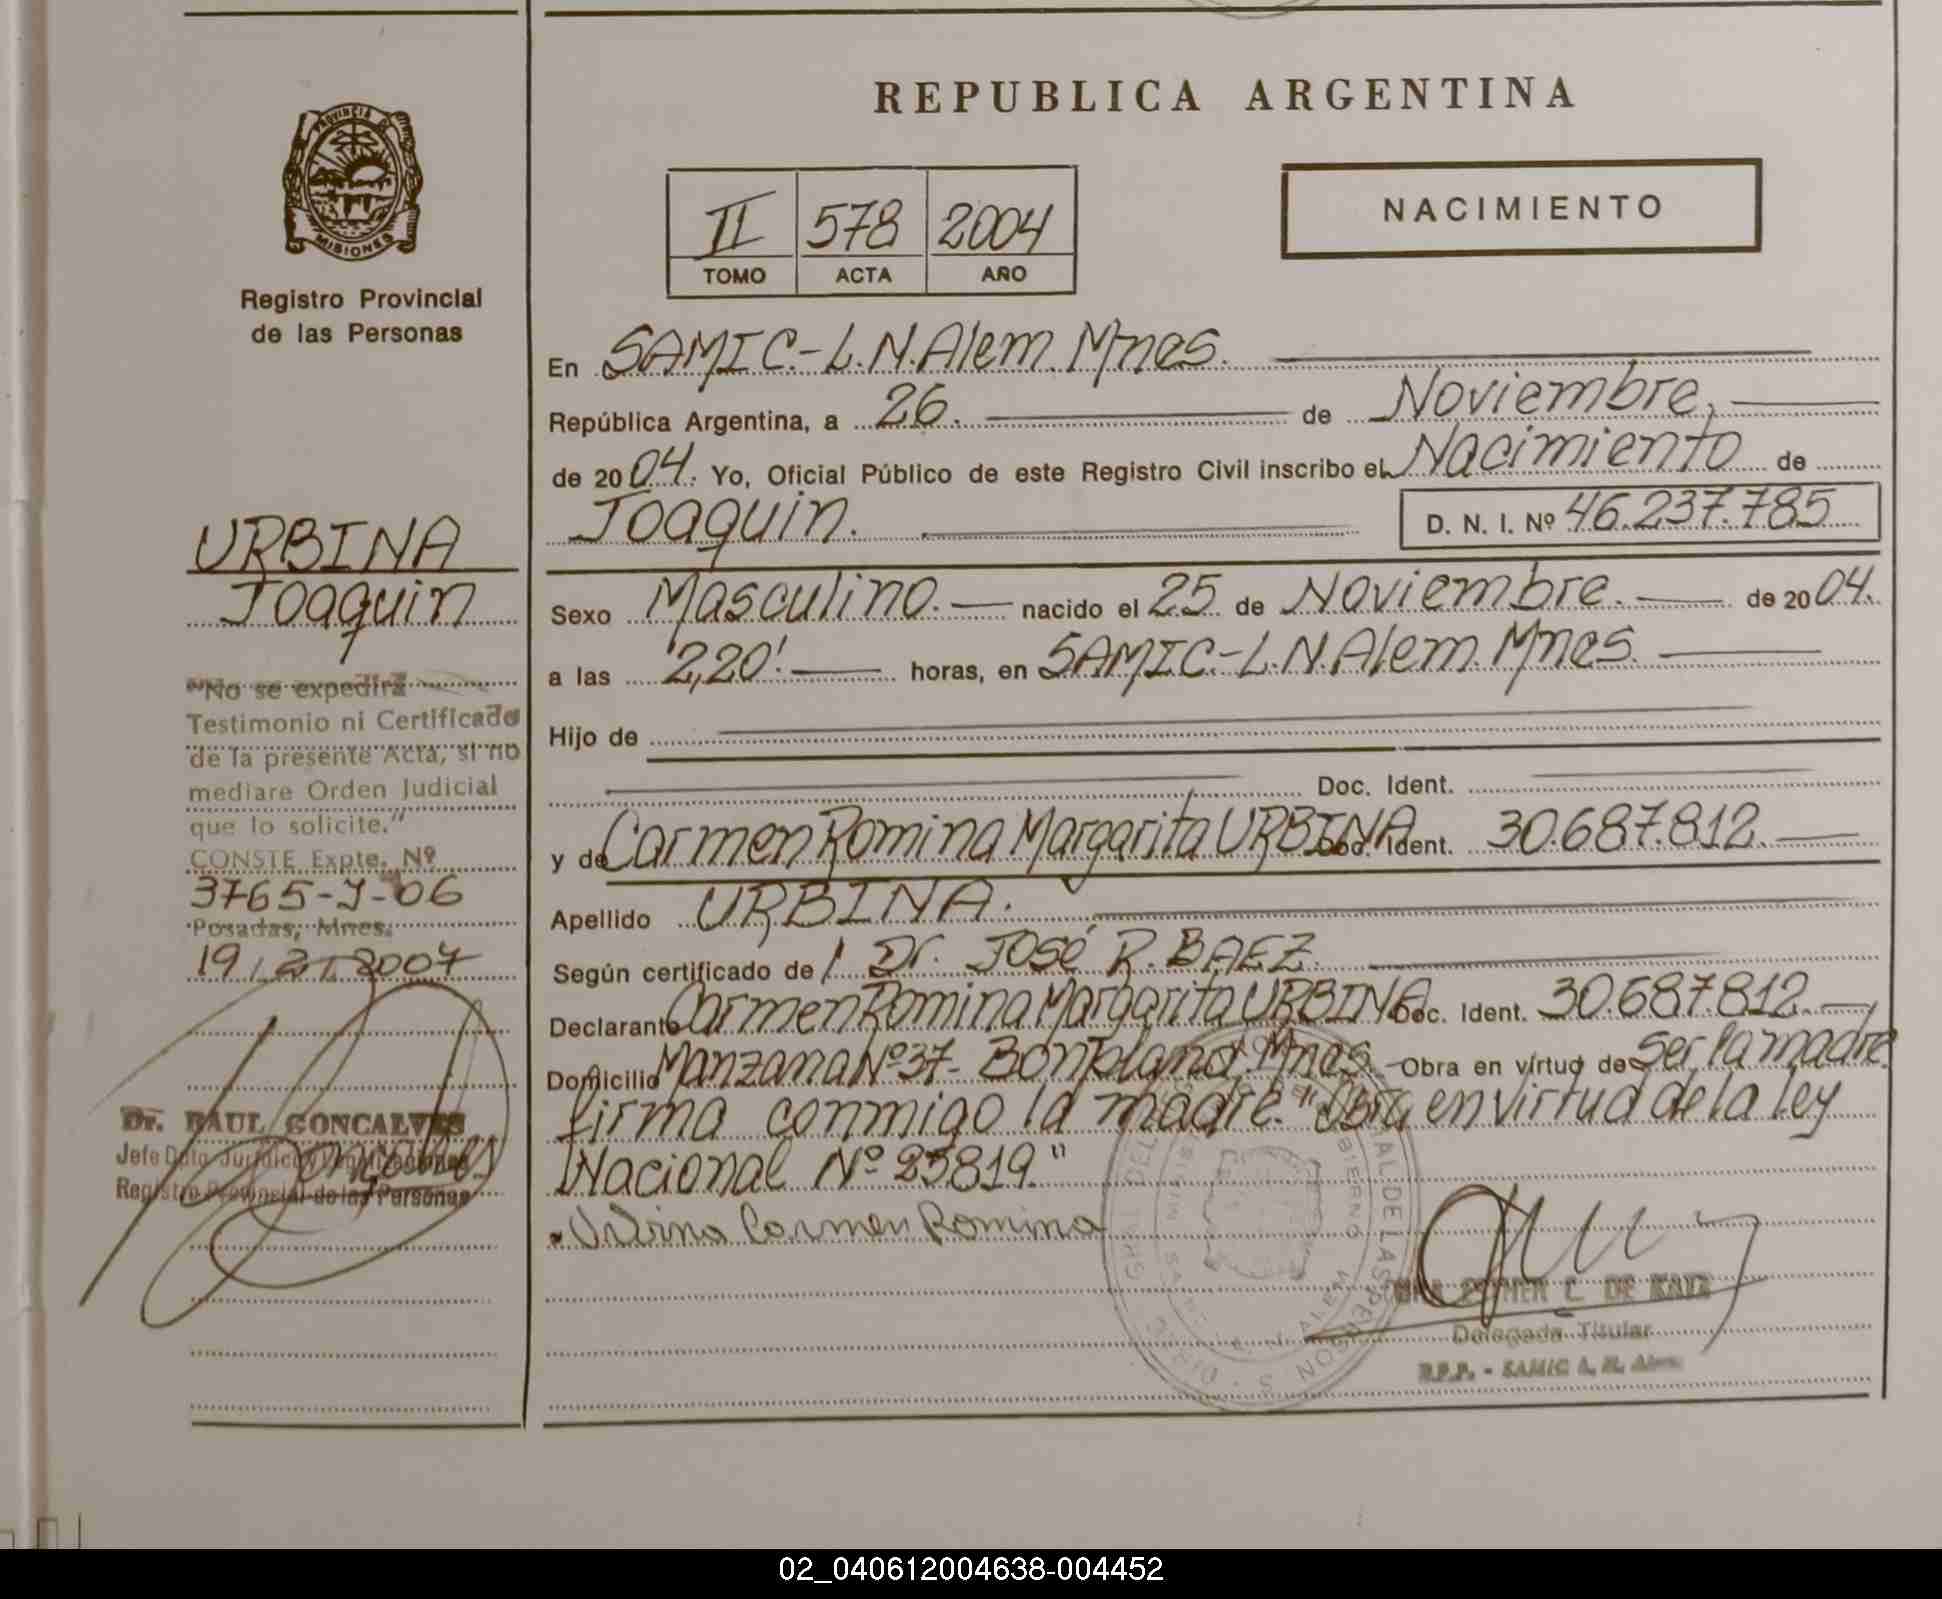 REPUBLICA ARGENTINA
PROVINCIA DE
MISIONES
Registro Provincial
de las Personas
II 578 2004
TOMO ACTA AÑO
NACIMIENTO
En SAMIC-L.N.Alem. Mnes.
República Argentina, a 26. de Noviembre,
de 2004. Yo, Oficial Público de este Registro Civil inscribo el Nacimiento de
Joaquin. D. N. I. Nº 46.237.785
Sexo Masculino. nacido el 25 de Noviembre. de 2004.
a las 2,20'. horas, en SAMIC.-L.N.Alem. Mnes.
Hijo de
Doc. Ident.
y de Carmen Romina Margarita URBINA Doc. Ident. 30.687.812.
Apellido URBINA.
Según certificado de Dr. José R. BAEZ.
Declarante Carmen Romina Margarita URBINA Doc. Ident. 30.687.812.
Domicilio Manzana Nº 37- Bonpland. Mnes. Obra en virtud de Ser la madre
firma conmigo la madre. "Obra en virtud de la Ley
Nacional Nº 25819."
Urbina Carmen Romina
C. DE
Delegada Titular
R.P.P. - SAMIC L. N. Alem
URBINA
Joaquin
"No se expedirá
Testimonio ni Certificado
de la presente Acta, si no
mediare Orden Judicial
que lo solicite."
CONSTE Expte. Nº
3765-J-06
Posadas, Mnes.
19/2/2007
Dr. RAUL GONCALVES
Jefe Dpto. Jurídico y
Registro Provincial de las Personas
02_040612004638-004452